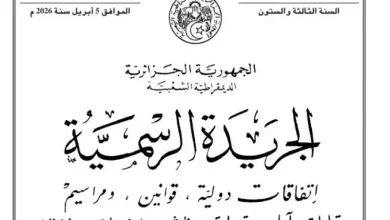 السنة الثالثة والستون
الموافق 5 أبريل سنة 2026 م
الجمهورية الجزائرية
الديمقراطية الشعبية
الجريدة الرسمية
إتفاقات دولية ، قوانين ، ومراسيم